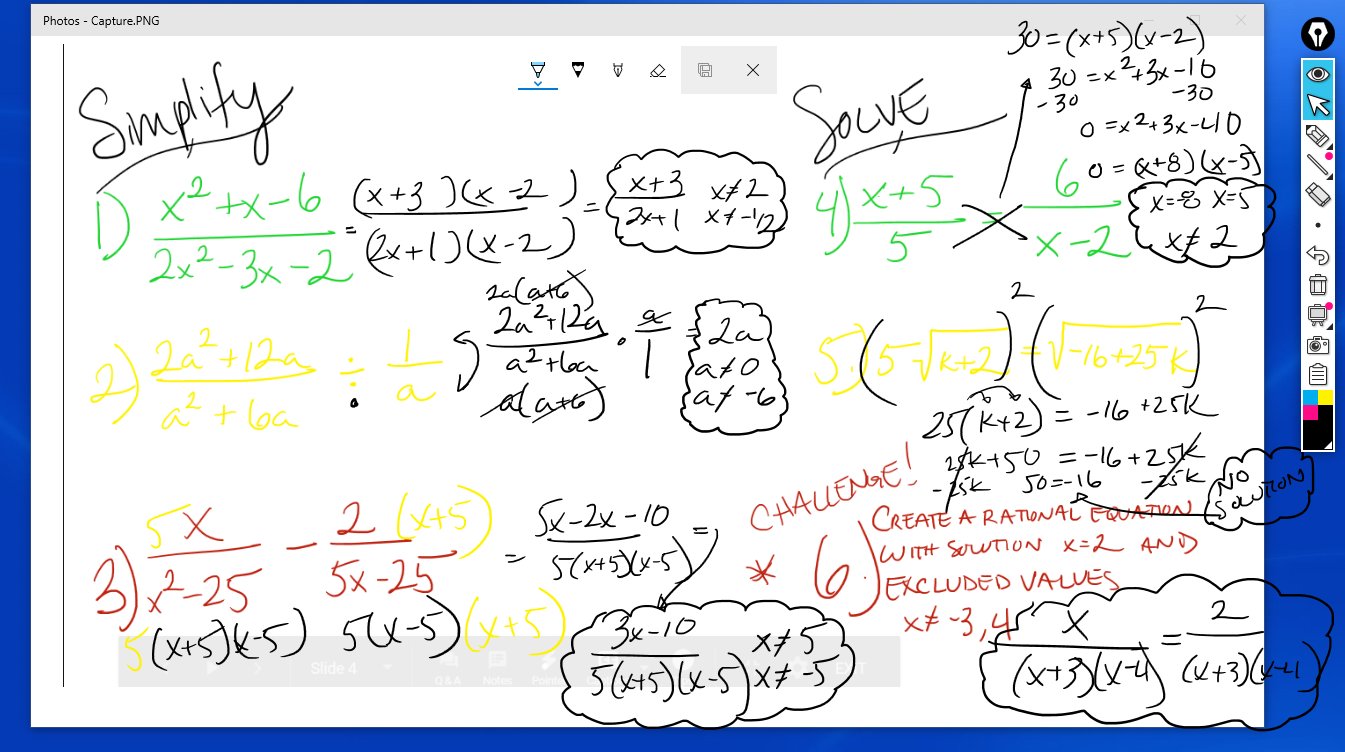 Photos - Capture.PNG
Simplify
1) x²+x-6 / 2x²-3x-2 = (x+3)(x-2) / (2x+1)(x-2) = x+3 / 2x+1 x≠2 x≠-1/2
2) 2a²+12a / a²+6a ÷ 1/a
2a(a+6)
2a²+12a / a²+6a · a/1 =
a(a+6)
2a
a≠0
a≠-6
3) 5x / x²-25 - 2(x+5) / 5x-25 = 5x-2x-10 / 5(x+5)(x-5) =
5(x+5)(x-5) 5(x-5)(x+5)
3x-10 / 5(x+5)(x-5) x≠5 x≠-5
SOLVE
4) x+5 / 5 = 6 / x-2
30=(x+5)(x-2)
30=x²+3x-10
-30 -30
0=x²+3x-40
0=(x+8)(x-5)
x=-8 x=5
x≠2
5.) (5√k+2)² = (√-16+25k)²
25(k+2) = -16+25k
25k+50 = -16+25k
-25k 50=-16 -25k
NO
SOLUTION
CHALLENGE!
* 6.) CREATE A RATIONAL EQUATION
WITH SOLUTION x=2 AND
EXCLUDED VALUES
x≠-3,4
x / (x+3)(x-4) = 2 / (x+3)(x-4)
Slide 4
Q&A
Notes
Pointer
EXIT